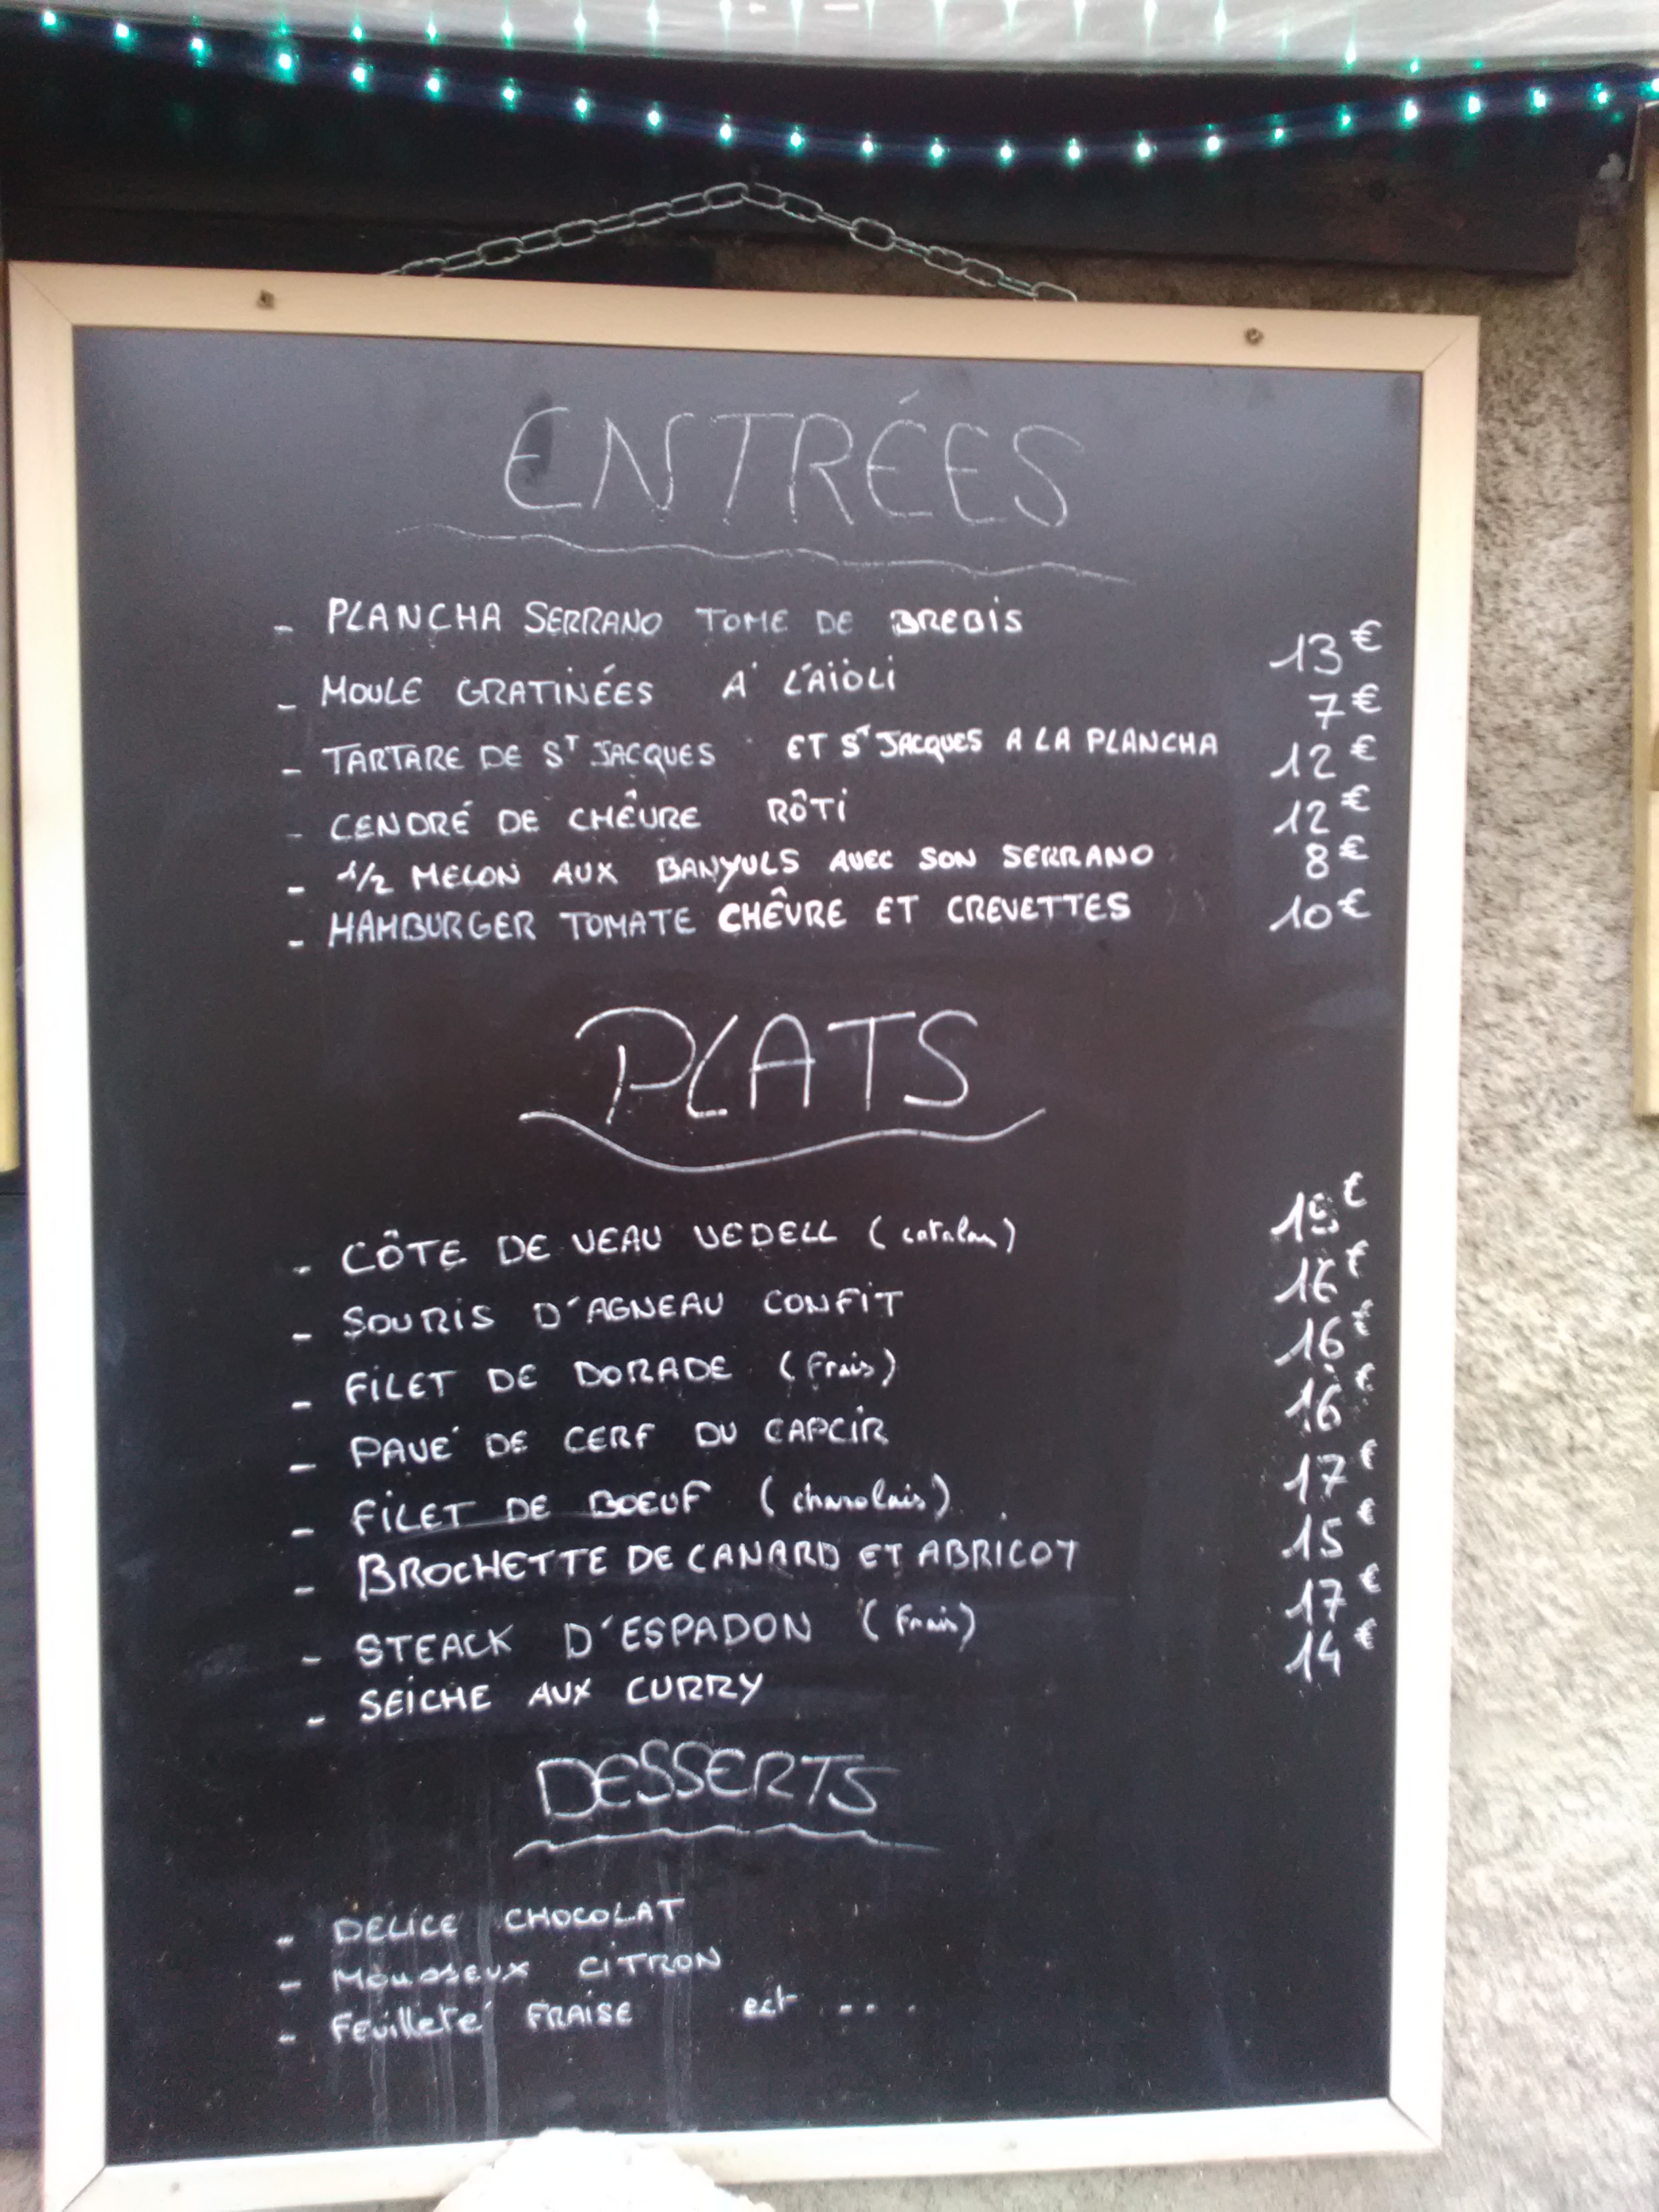 ENTRÉES
- PLANCHA SERRANO TOME DE BREBIS 13€
- MOULE GRATINÉES A' L'AÏOLI 7€
- TARTARE DE ST JACQUES ET ST JACQUES A LA PLANCHA 12€
- CENDRÉ DE CHÊVRE RÔTI 12€
- 1/2 MELON AUX BANYULS AVEC SON SERRANO 8€
- HAMBURGER TOMATE CHÊVRE ET CREVETTES 10€
PLATS
- CÔTE DE VEAU VEDELL (catalan) €
- SOURIS D'AGNEAU CONFIT 16€
- FILET DE DORADE (Frais) 16€
- PAVÉ DE CERF DU CAPCIR 16€
- FILET DE BOEUF (charolais) 17€
- BROCHETTE DE CANARD ET ABRICOT 15€
- STEACK D'ESPADON (Frais) 17€
- SEICHE AUX CURRY 14€
DESSERTS
- DELICE CHOCOLAT
- MOUSSEUX CITRON
- FEuilleté FRAISE ect ....